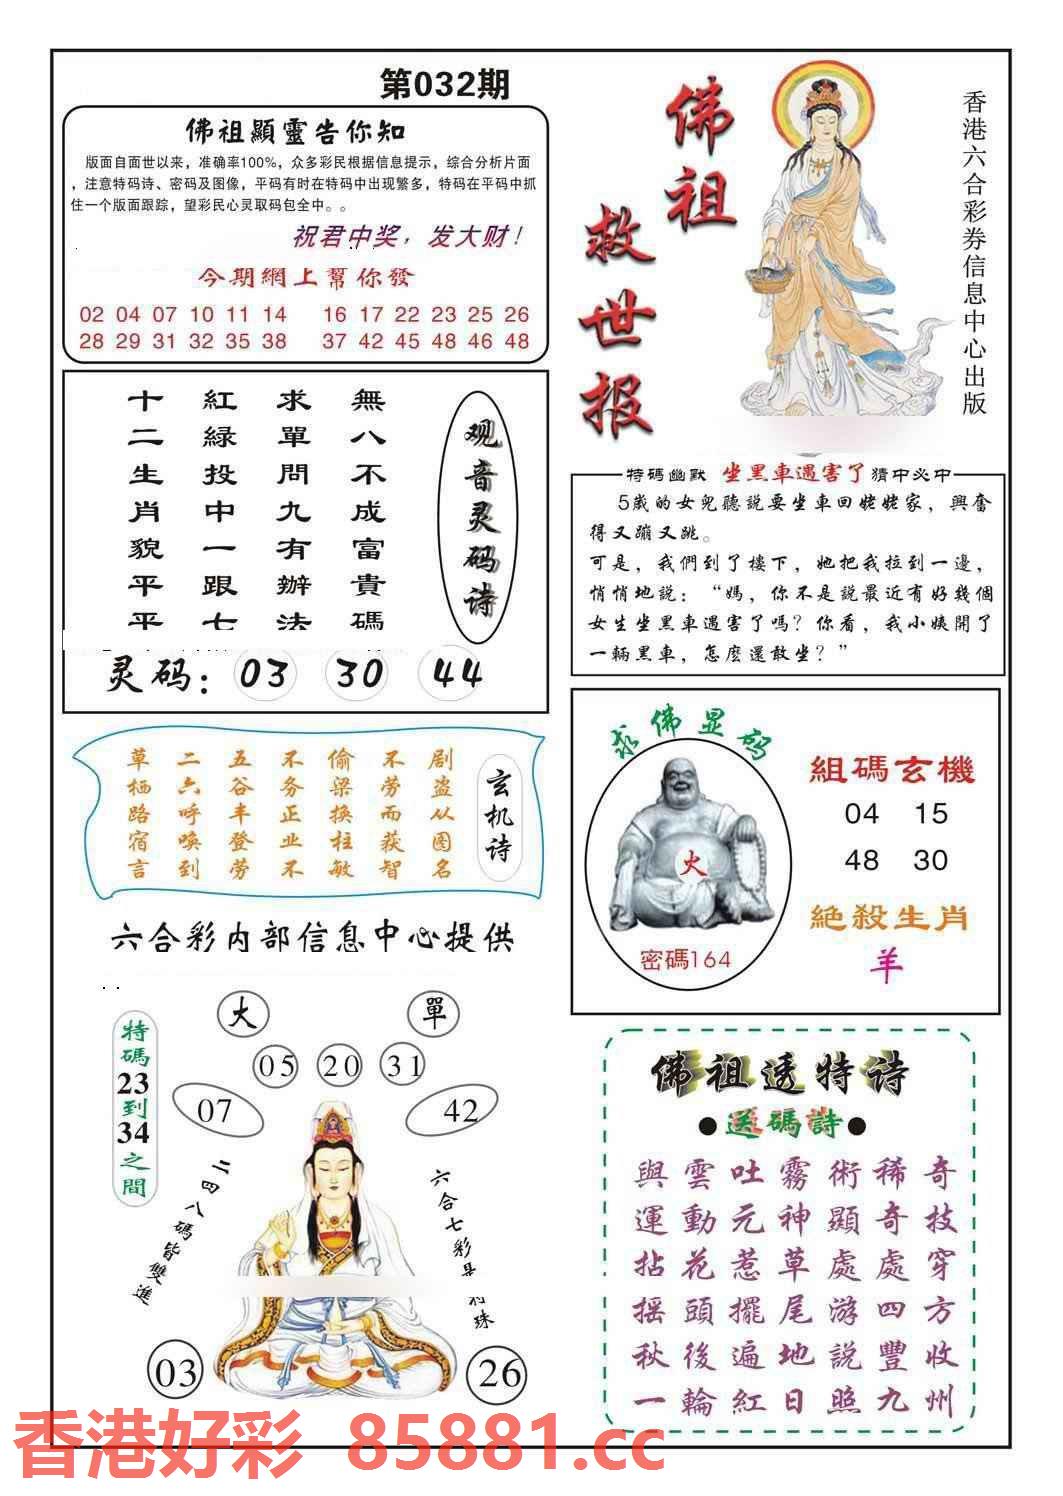 第032期
佛祖顯靈告你知
版面自面世以来，准确率100%，众多彩民根据信息提示，综合分析片面
，注意特码诗、密码及图像，平码有时在特码中出现繁多，特码在平码中抓
住一个版面跟踪，望彩民心灵取码包全中。。
祝君中奖，发大财！
今期網上幫你發
02 04 07 10 11 14 16 17 22 23 25 26
28 29 31 32 35 38 37 42 45 48 46 48
佛祖
救世报
香港六合彩券信息中心出版
观音灵码诗
無八不成富貴碼
求單問九有辦法
紅綠投中一跟七
十二生肖貌平平
灵码：03 30 44
特碼幽默 坐黑車遇害了 猜中必中
5歲的女兒聽說要坐車回姥姥家，興奮
得又蹦又跳。
可是，我們到了樓下，她把我拉到一邊，
悄悄地說：“媽，你不是說最近有好幾個
女生坐黑車遇害了嗎？你看，我小姨開了
一輛黑車，怎麼還敢坐？”
玄机诗
剧盗从图名
不劳而获智
偷梁换柱敏
不务正业不
五谷丰登劳
二六呼唤到
草栖路宿言
求佛显码
火
密碼164
組碼玄機
04 15
48 30
絕殺生肖
羊
六合彩内部信息中心提供
大 單
05 20 31
07 42
特碼23到34之間
二四八碼皆雙進
六合七彩是特殊
03 26
佛祖透特诗
●送碼詩●
與雲吐霧術稀奇
運動元神顯奇技
拈花惹草處處穿
摇頭擺尾游四方
秋後遍地説豐收
一輪紅日照九州
香港好彩 85881.cc